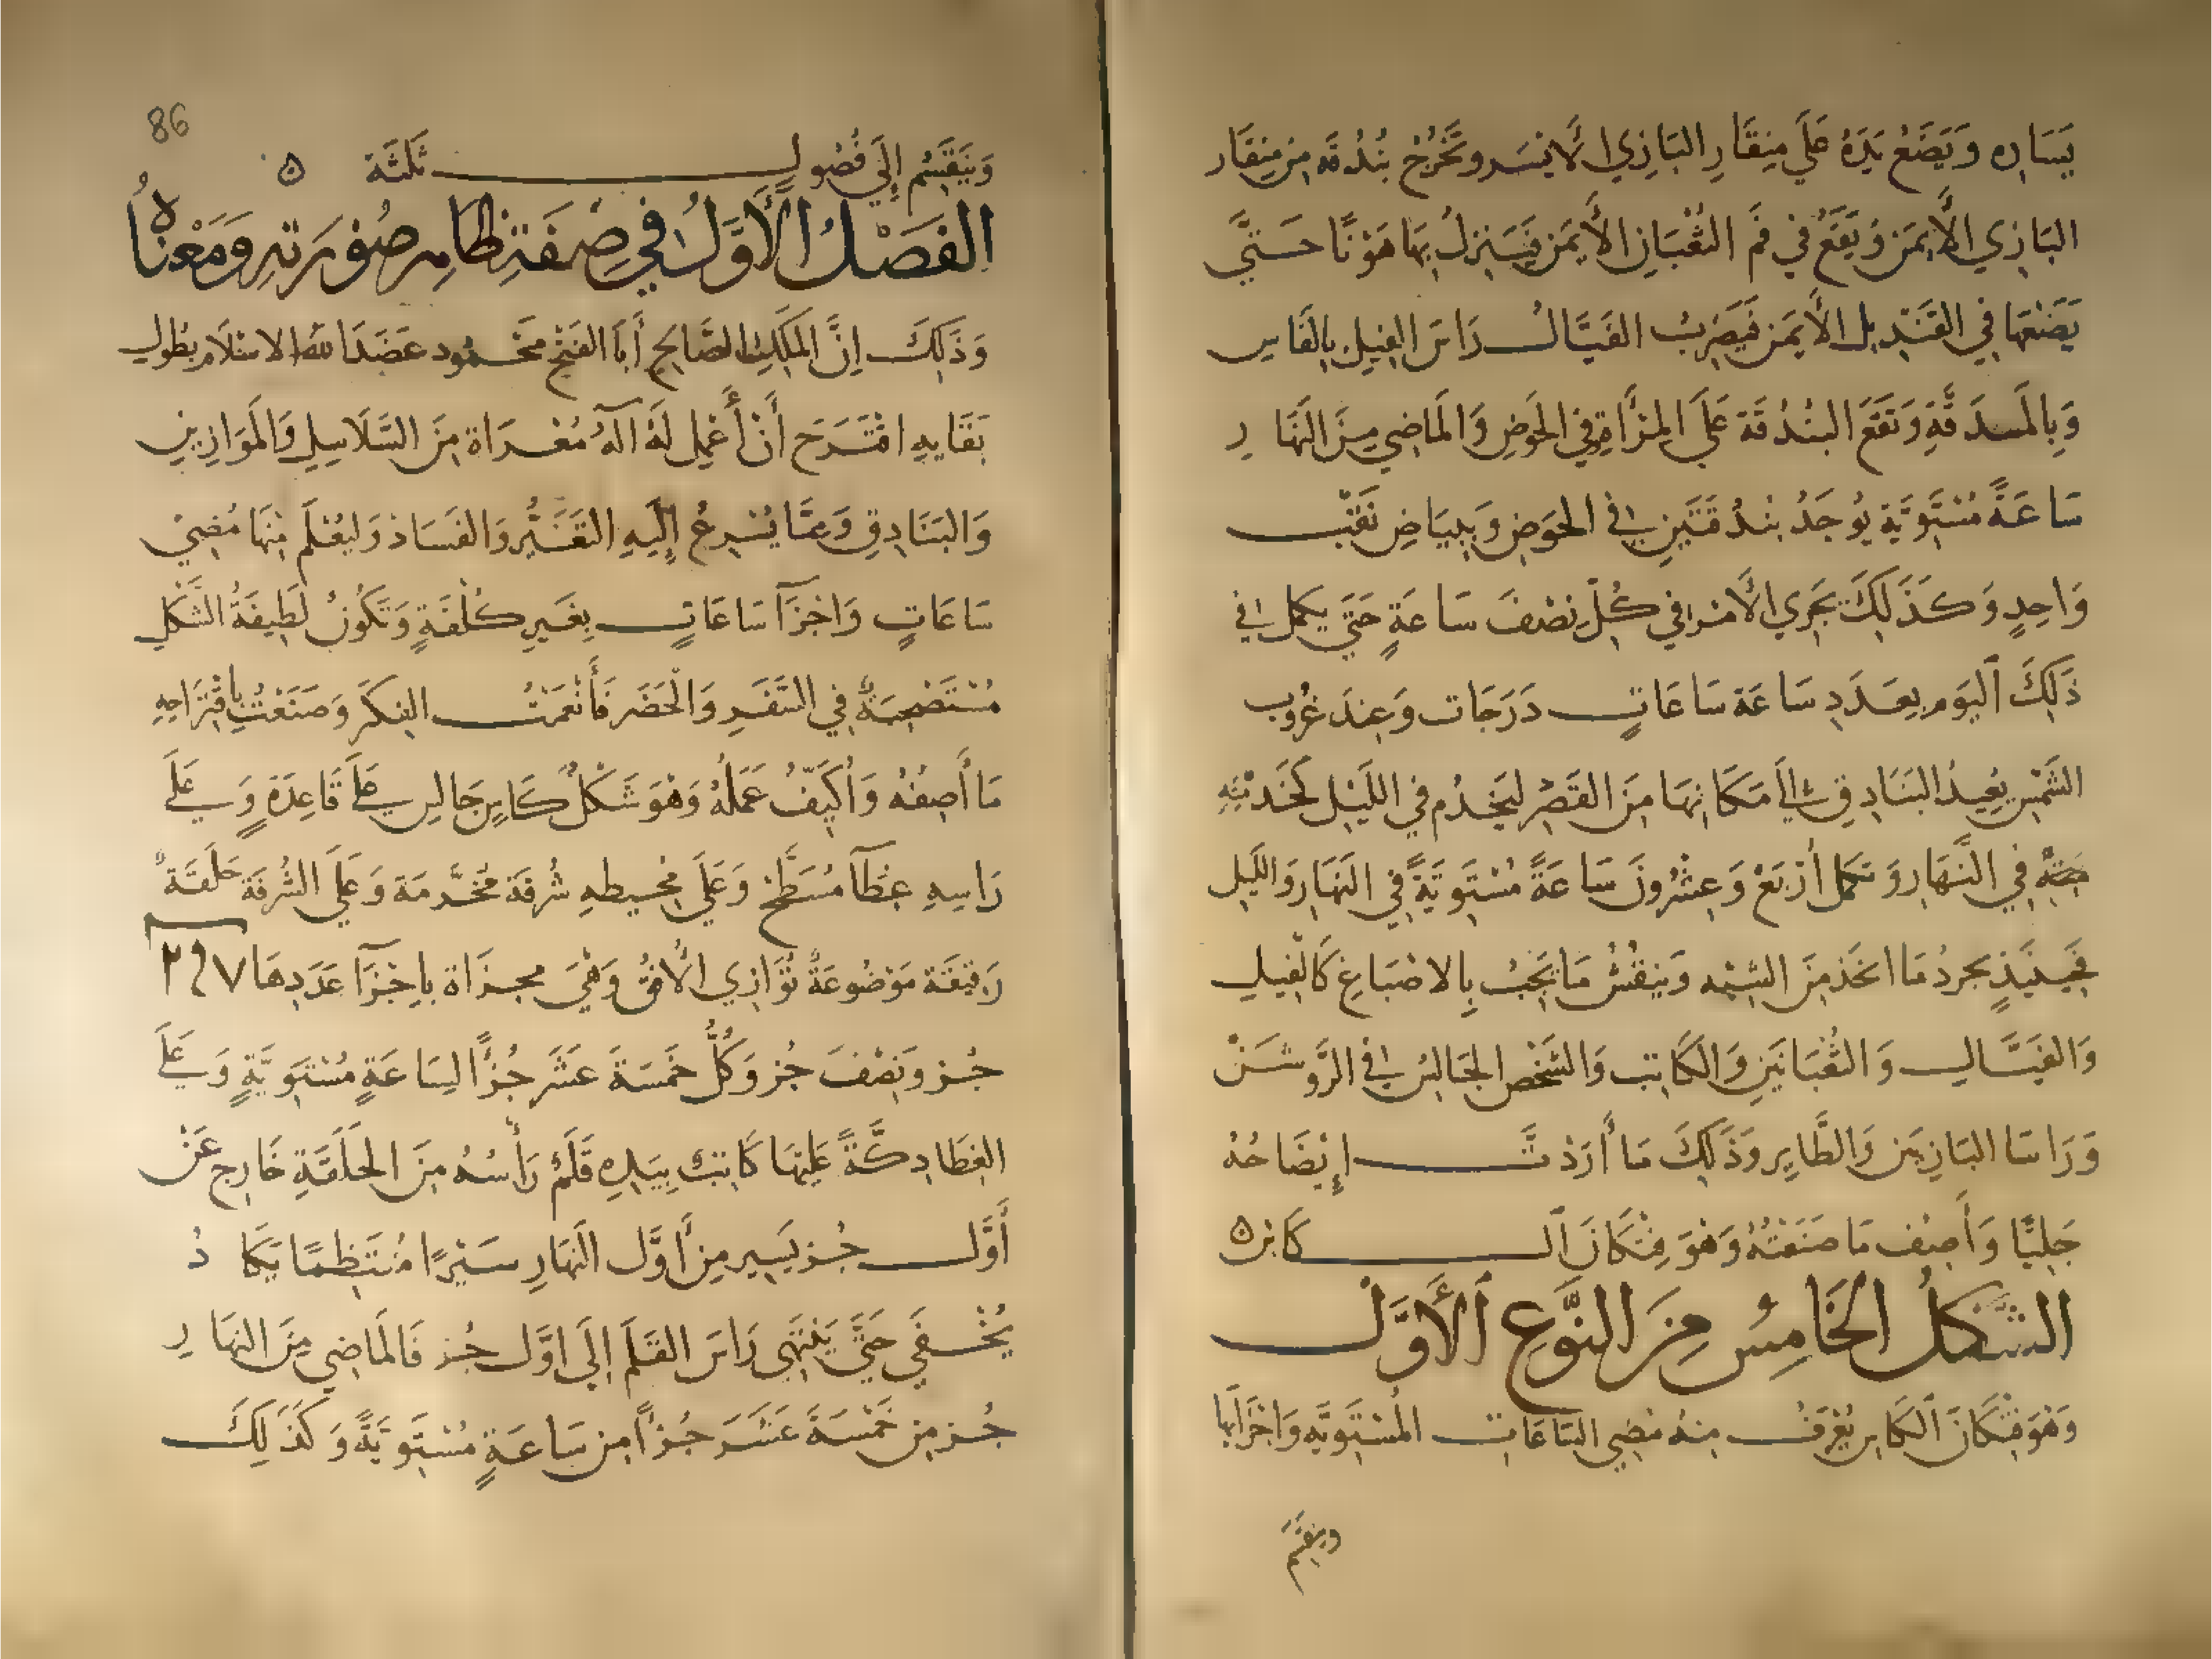 يَسَارِه وَيَضَعُ يَدَهُ عَلَي مِنقَارِ البَازِي الأَيْسَر وتَخْرُجُ بُنْدُقَه مِن مِنقَار
البَازِي الأَيمَن وَيَقَعُ في فَم الثُعْبَانِ الأَيْمَن فَيَنزِلُ بِهَا هَوْنًا حَتَّي
يَضَعَهَا فِي القَنْدِيل الأَيمَن فَيَضرِبُ الفَيَّالُ رَاسَ الفِيلِ بِالفَاسِ
وَبِالمدَقَّةِ وَتَقَعَ البُنْدُقَة عَلَي المِرْآةِ وَفِي الحَوضِ وَالمَاضِي مِنَ النَهَارِ
سَاعَةً مُسْتَوِيَّة يُوجَدُ بُندُقَتَينِ فِي الحَوضِ وَبِبَيَاضِ نَقْبٍ
وَاحِدٍ وَكَذَلِكَ يَجرِي الأَمْر فِي كُلِّ نِصْفَ سَاعَةٍ حَتَي يكمل فِي
ذَلِكَ اليَوم بِعَدَدِ سَاعَة سَاعَاتٍ دَرَجَات وَعِندَ غُرُوب
الشَمْسِ يُعِيدُ البَنَادِقِ إِلَي مَكَانِهَا مِنَ القَصْرِ لِيَخدُم فِي اللَيْل كَخَدْمَتِهِ
فِي النَّهَار وَتكمل أَرْبَعْ وَعِشْرُونَ سَاعَةً مُسْتَوِيَةً فِي النَهَار وَاللَيل
فَحِينَيذٍ يجردُ مَا اتخَذ مِنَ الشبه وَيَنقُشُ مَا يَجِبُ بِالاصْبَاغِ كَالفِيلِ
وَالفَيَّالِ وَالثُعْبَانَينِ وَالكَاتِب وَالشَخْص الجَالِسُ فِي الرَّوشَنْ
وَرَاسَا البَازِيَين وَالطَّايِر وَذَلِكَ مَا أَرَدْتَ إِيْضَاحُهُ
جَلِيًّا وَأَصِف مَا صَنَعْتُهُ وَهوَ فِنْكَانَ الكَاس ه
الشَّكلُ الخَامِسُ مِنَ النَّوعِ الأَوَّلِ
وَهوَ فِنْكَانَ الكَاس يُعْرَفُ مِنهُ مُضِي السَاعَات المُسْتَوِيَّه وَاجْزَايهَا
وينقسم
86
وَيَنقَسِمُ إِلَي فُصُولٍ ثَلَثَة ه
الفَصْلُ الأَوَّلُ فِي صِفَةِ ظَاهِر صُوْرَتِهِ وَمَعْنَاهُ
وَذَلِكَ اِنَّ المَلِكَ الصَّالِحِ أَبَا الفَتْحِ مَحْمُود عَضَدَ اللهُ الاسْلَام بطُولِ
بَقَايِهِ اقتَرَح أَنْ أَعْمِل لَهُ آلَةً مُعْرَاة مِنَ السَّلَاسِلِ وَالمَوَازِينِ
وَالبَنَادِقِ وَمِمَّا يُسْرِعُ إِلَيهِ التَغَيُّر وَالفَسَاد وَليُعْلَم مِنْهَا مُضِيْ
سَاعَاتٍ وَاجْزَآ سَاعَاتٍ بِغَيرِ كُلْفَةٍ وَتَكُونُ لَطِيفَةُ الشَّكْلِ
مُسْتَصْحِبَةً فِي السَّفَرِ وَالحَضَر فَأَنْعَمْتُ الفِكرَ وَصَنَعْتُ بِاقْتِرَاحِهِ
مَا أَصِفُهُ وَأُكَيِّفُ عَمَلَهُ وَهْوَ شَكْلُ كَاسٍ جَالِسٍ عَلَي قَاعِدَةٍ وَعَلَي
رَاسِهِ غِطَآ مُسَطَّح وَعَلَي مُحِيطِهِ شُرفَة مُخَرَّمَة وَعَلَي الشُرفَة حَلَقَةً
رَقِيقَة مَوضُوعَةً تُوَازِي الأُفقُ وَهْيَ مجزَاة بِاجْزَآ عَدَدهَا ٢١٧
جُز وَنِصْفَ جُز وَكُلُّ خَمسَةَ عَشَر جُزًا لِسَاعَةٍ مُسْتَوِيَّةٍ وَعَلَي
الغِطَا دِكَّةً عَليهَا كَاتِبٌ بِيَدِهِ قَلَمٌ رَأْسُهُ مِنَ الحَلَقَةِ خَارِج عَنْ
أَوَّلِ جُز يَسِير مِن أَوَّل النَهَارِ سَيْرًا مُنتَظِمًا يَكَادُ
يُخْفَي حَتَّي يَنْتَهِي رَاسَ القَلَم إِلَي اوَّل جُز فَالمَاضِي مِنَ النهَارِ
جُز مِن خَمْسَةَ عَشَرَ جُزْأً مِن سَاعَةٍ مُسْتَوِيَةً وَكَذَلِكَ